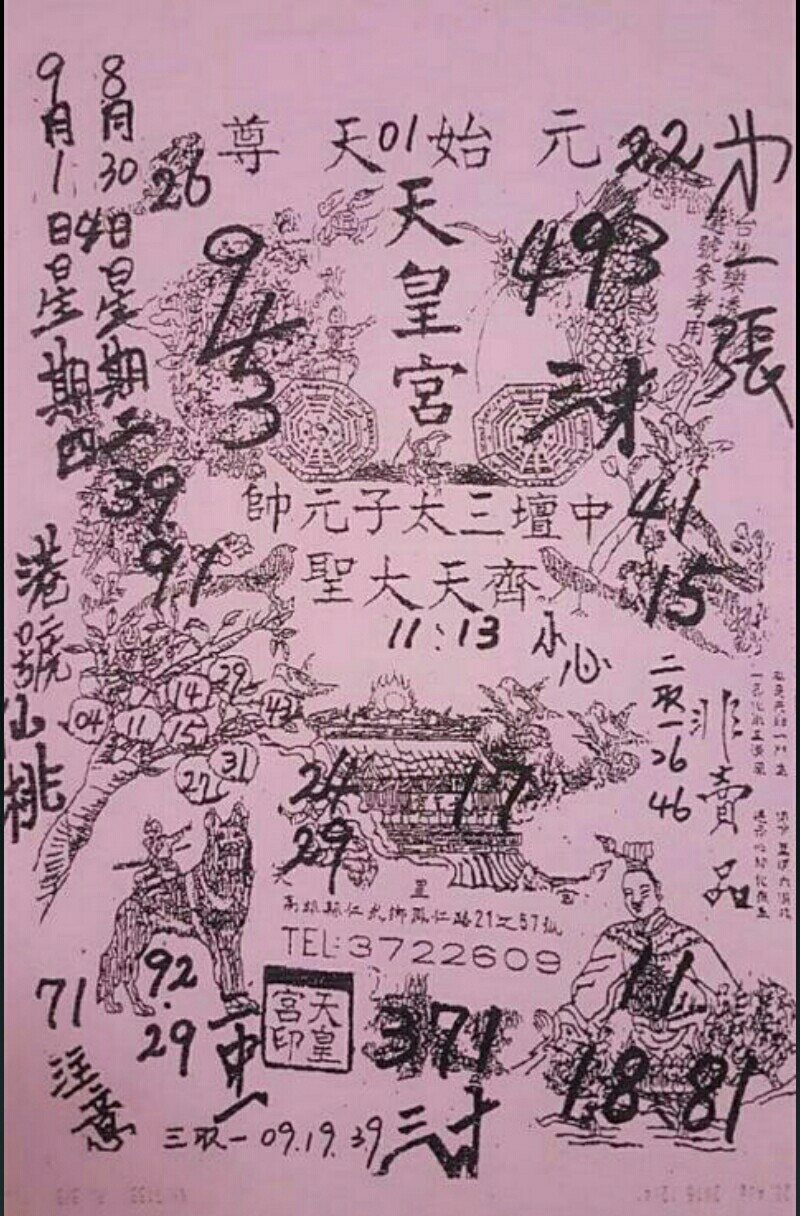 元始01天尊
22
26
天皇宮
493
三才
9
5
3
台灣樂透
選號參考用
第一張
8月30日星期二
9月1日星期四
4
39
91
中壇三太子元帥
41
齊天大聖
15
11:13
小心
港號
仙桃
29
14
43
04
11
15
27
31
二取一
26
46
非賣品
24
29
17
天皇宮
高雄縣仁武鄉鳳仁路21之57號
TEL:3722609
天皇
宮印
71
注意
92.
29
二中一
371
三才
三取一09.19.39
11
18.81